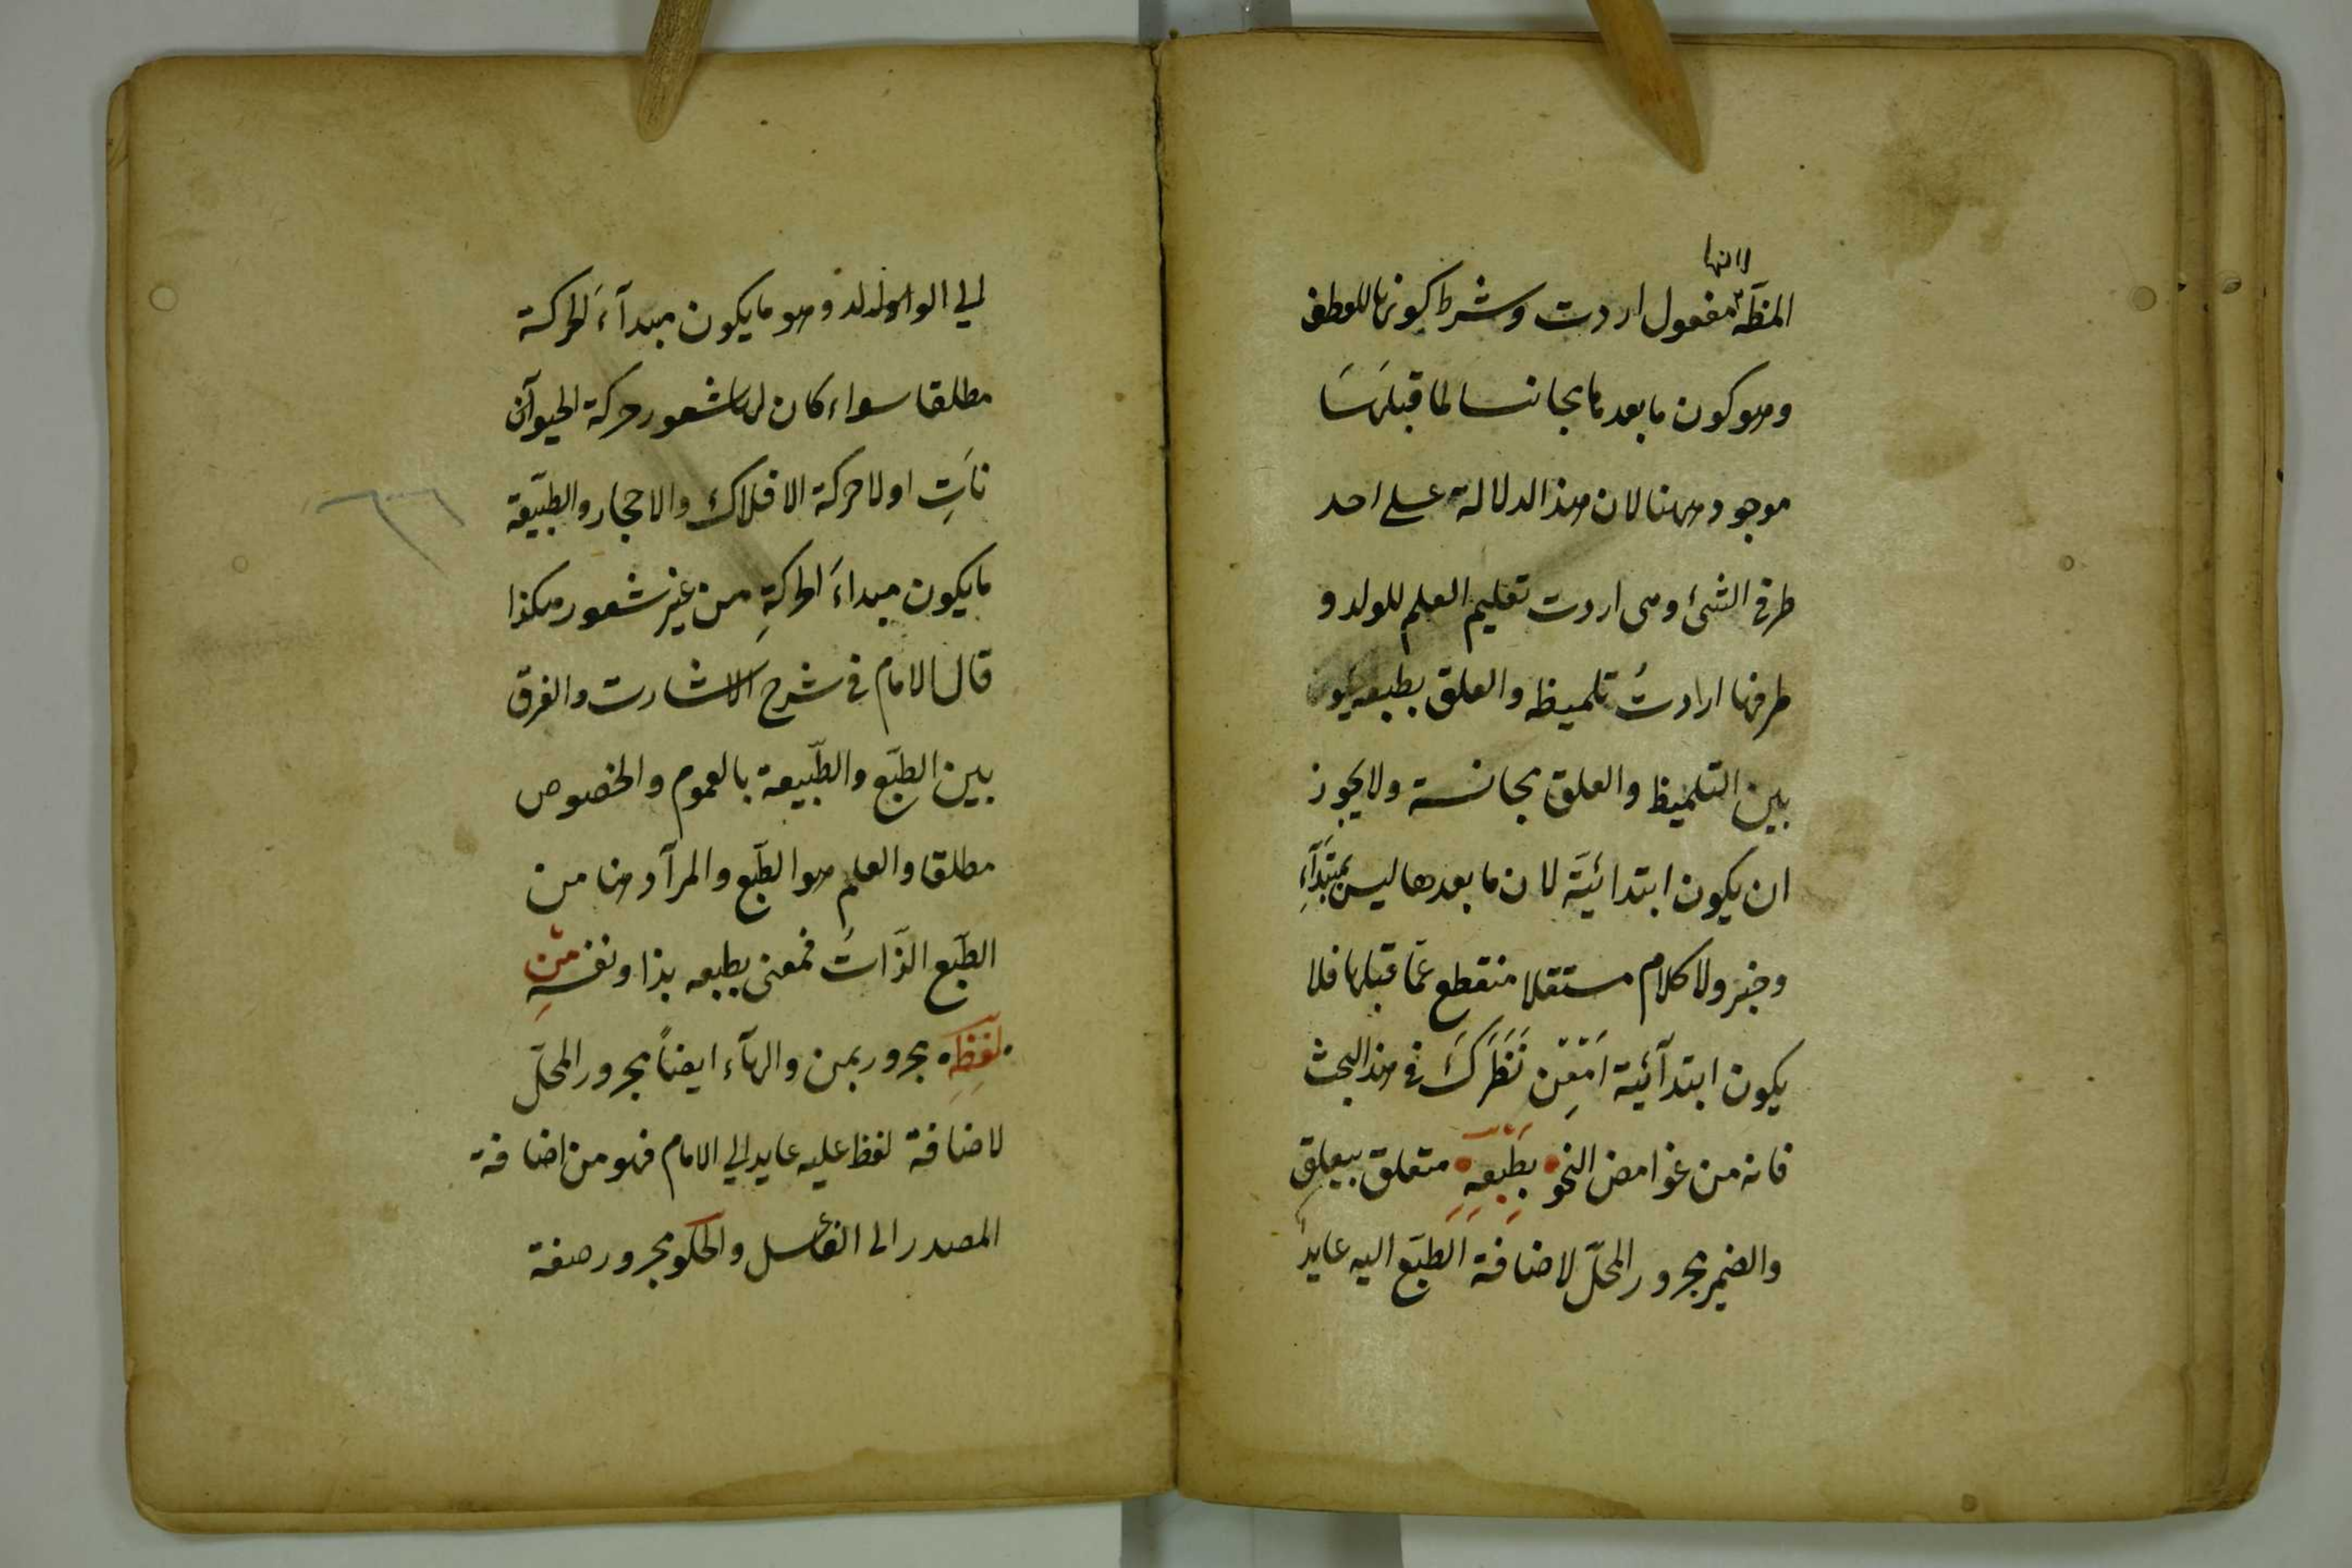 لانها
المظة مفعول اردت وشرط كونها للعطف
وهو كون ما بعدها مجانسا لما قبلها
موجود ههنا لان هذا لدلالة على احد
طرفى الشئ وهى اردت تعليم العلم للولد و
طرفها ارادت تلميظه والعلق بطبعه
بين التلميظ والعلق مجانسة ولا يجوز
ان يكون ابتدائيَة لان ما بعدها ليس بمبتدآءِ
وخبر ولا كلام مستقلا منقطع عمّا قبلها فلا
يكون ابتدآئية اَمْعِنْ نَظَرَكَ فى هذا البحث
فانه من غوامض النحو بِطَبْعِهِ متعلق بيعلق
والضمير مجرور المحلّ لاضافة الطبَع اليه عايد
الي الوالولد وهو ما يكون مبدآءَ لحركة
مطلقا سواء كان لها شعور حركة الحيوآن
ناتِ اولا حركة الافلاك والاحجار والطبّيعة
ما يكون مبداءَ الحركةِ من غير شعور هكذا
قال الامام فى شرح الاشارت والفرق
بين الطبّع والطبّيعة بالعموم والخصوص
مطلقا والعلم هو الطبّع والمرآد هنا من
الطبّع الذّاتُ فمعنى بطبعه بذا ونفسهِ مْن
لَفْظِهِ مجرور بمن والهآء ايضاً مجرور المحلّ
لاضافة لفظ عليه عايد الي الامام فهو من اضافة
المصدر الى الفاعل والحكو مجرور صفة